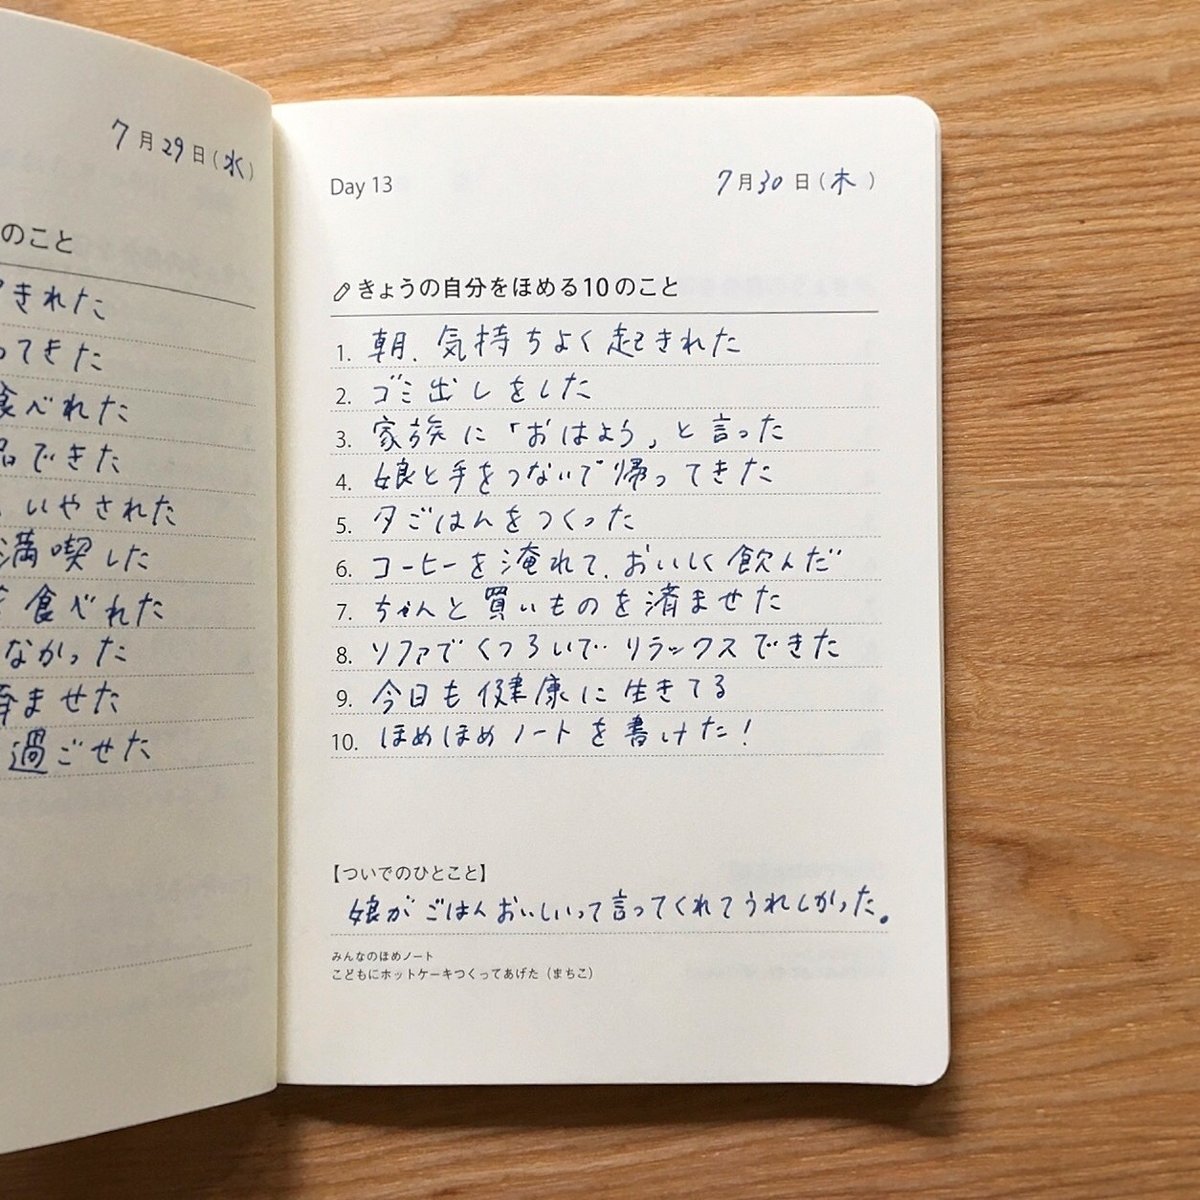 7月29日(水)
のこと
きれた
ってきた
食べれた
できた
いやされた
満喫した
食べれた
なかった
ませた
過ごせた
Day 13
7月30日(木)
きょうの自分をほめる10のこと
1. 朝、気持ちよく起きれた
2. ゴミ出しをした
3. 家族に「おはよう」と言った
4. 娘と手をつないで帰ってきた
5. 夕ごはんをつくった
6. コーヒーを淹れて、おいしく飲んだ
7. ちゃんと買いものを済ませた
8. ソファでくつろいで リラックスできた
9. 今日も健康に生きてる
10. ほめほめノートを書けた!
【ついでのひとこと】
娘がごはんおいしいって言ってくれてうれしかった。
みんなのほめノート
こどもにホットケーキつくってあげた（まちこ）